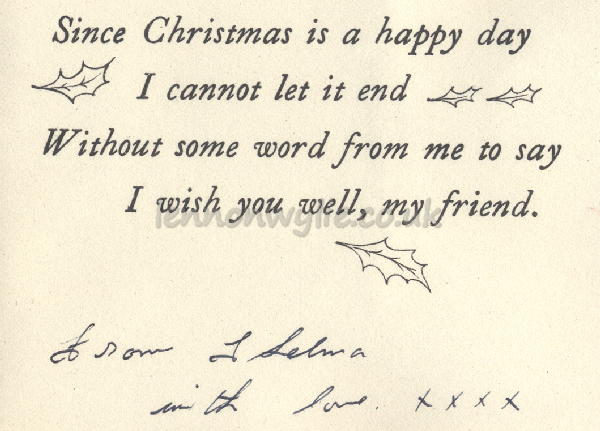 Since Christmas is a happy day
I cannot let it end
Without some word from me to say
I wish you well, my friend.
lennonwylie.co.uk
from Thelma
with love. x x x x